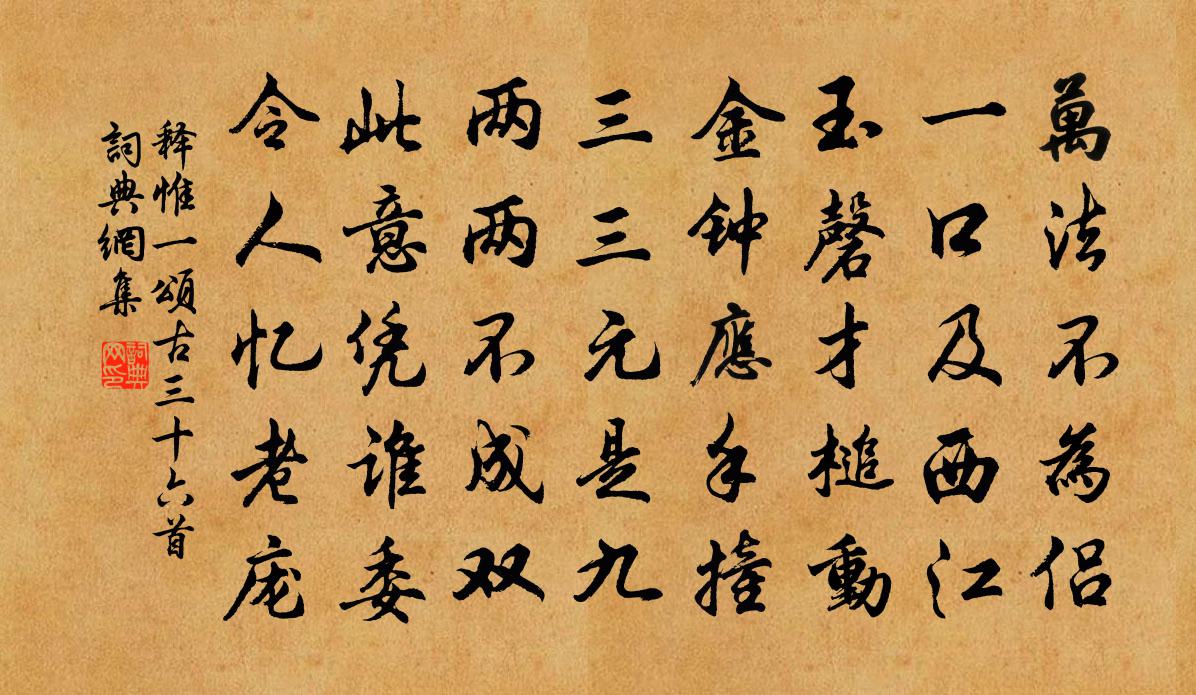 萬法不為侣
一口及西江
玉磬才槌動
金钟應手撞
三三元是九
两两不成双
此意凭谁委
令人忆老庞
释惟一頌古三十六首
詞典網集
詞典網印